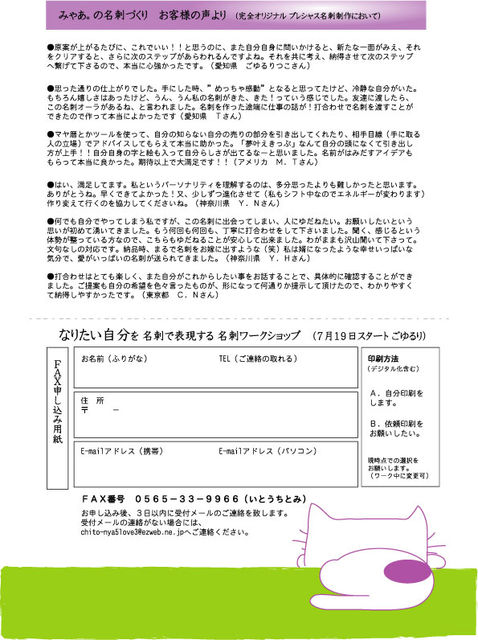 みゃあ。の名刺づくり　お客様の声より　（完全オリジナル プレシャス名刺制作において）
●原案が上がるたびに、これでいい！！と思うのに、また自分自身に問いかけると、新たな一面がみえ、それ
をクリアすると、さらに次のステップがあらわれるんですよね。それを共に考え、納得させて次のステップ
へ繋げて下さるので、本当に心強かったです。（愛知県　ごゆるりつこさん）
●思った通りの仕上がりでした。手にした時、”めっちゃ感動”となると思ってたけど、冷静な自分がいた。
もちろん嬉しさはあったけど、うん、うん私の名刺がきた、きた！っていう感じでした。友達に渡したら、
この名刺オーラがあるね、と言われました。名刺を作った途端に仕事の話が！打合わせで名刺を渡すことが
できたので作って本当によかったです（愛知県　Tさん）
●マヤ暦とかツールを使って、自分の知らない自分の売りの部分を引き出してくれたり、相手目線（手に取る
人の立場）でアドバイスしてもらえて本当に助かった。「夢叶えきっぷ」なんて自分の頭になくて引き出し
方が上手！！自分自身の字と絵も入って自分らしさが出てるなーと思いました。名前がはみだすアイデアも
もらって本当に良かった。期待以上で大満足です！！（アメリカ　M．Tさん）
●はい、満足してます。私というパーソナリティを理解するのは、多分思ったよりも難しかったと思います。
ありがとうね。早くできてよかった！又、少しずつ進化させて（私もシフト中なのでエネルギーが変わります）
作り変えて行くのを協力してくださいね。（神奈川県　Y．Nさん）
●何でも自分でやってしまう私ですが、この名刺に出会ってしまい、人にゆだねたい。お願いしたいという
思いが初めて湧いてきました。もう何回も何回も、丁寧に打合わせをして下さいました。聞く、感じるという
体勢が整っている方なので、こちらもゆだねることが安心して出来ました。わがままも沢山聞いて下さって。
文句なしの対応です。納品時、まるで名刺をお嫁に出すような（笑）私は婿になったような幸せいっぱいな
気分で、愛がいっぱいの名刺が送られてきました。（神奈川県　Y．Hさん）
●打合わせはとても楽しく、また自分がこれからしたい事をお話することで、具体的に確認することができ
ました。ご提案も自分の希望を色々言ったものが、形になって何通りか提示して頂けたので、わかりやすく
て納得しやすかったです。（東京都　C．Nさん）
なりたい自分を 名刺で表現する 名刺ワークショップ　（7月19日スタート ごゆるり）
FAX申し込み用紙
お名前（ふりがな）　TEL（ご連絡の取れる）
住　所
〒　　－
E-mailアドレス（携帯）　E-mailアドレス（パソコン）
印刷方法
（デジタル化含む）
A．自分印刷を
します。
B．依頼印刷を
お願いしたい。
現時点での選択を
お願いします。
（ワーク中に変更可）
FAX番号　0565－33－9966（いとうちとみ）
お申し込み後、3日以内に受付メールのご連絡を致します。
受付メールの連絡がない場合には、
chito-nya5love3@ezweb.ne.jpへご連絡ください。